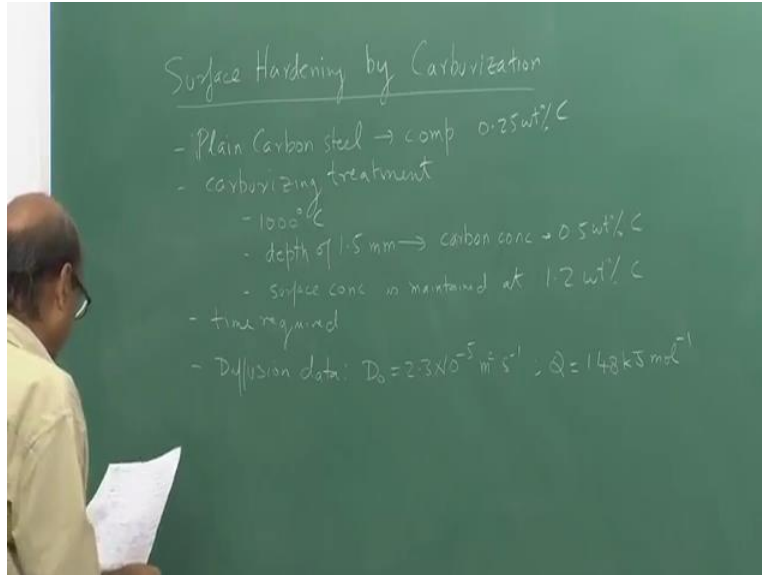 Surface Hardening by Carburization
- Plain Carbon steel → comp 0.25 wt% C
- carburizing treatment
- 1000°C
- depth of 1.5 mm → carbon conc → 0.5 wt% C
- surface conc is maintained at 1.2 wt% C
- time required
- Diffusion data: D₀ = 2.3×10⁻⁵ m² s⁻¹, Q = 148 kJ mol⁻¹